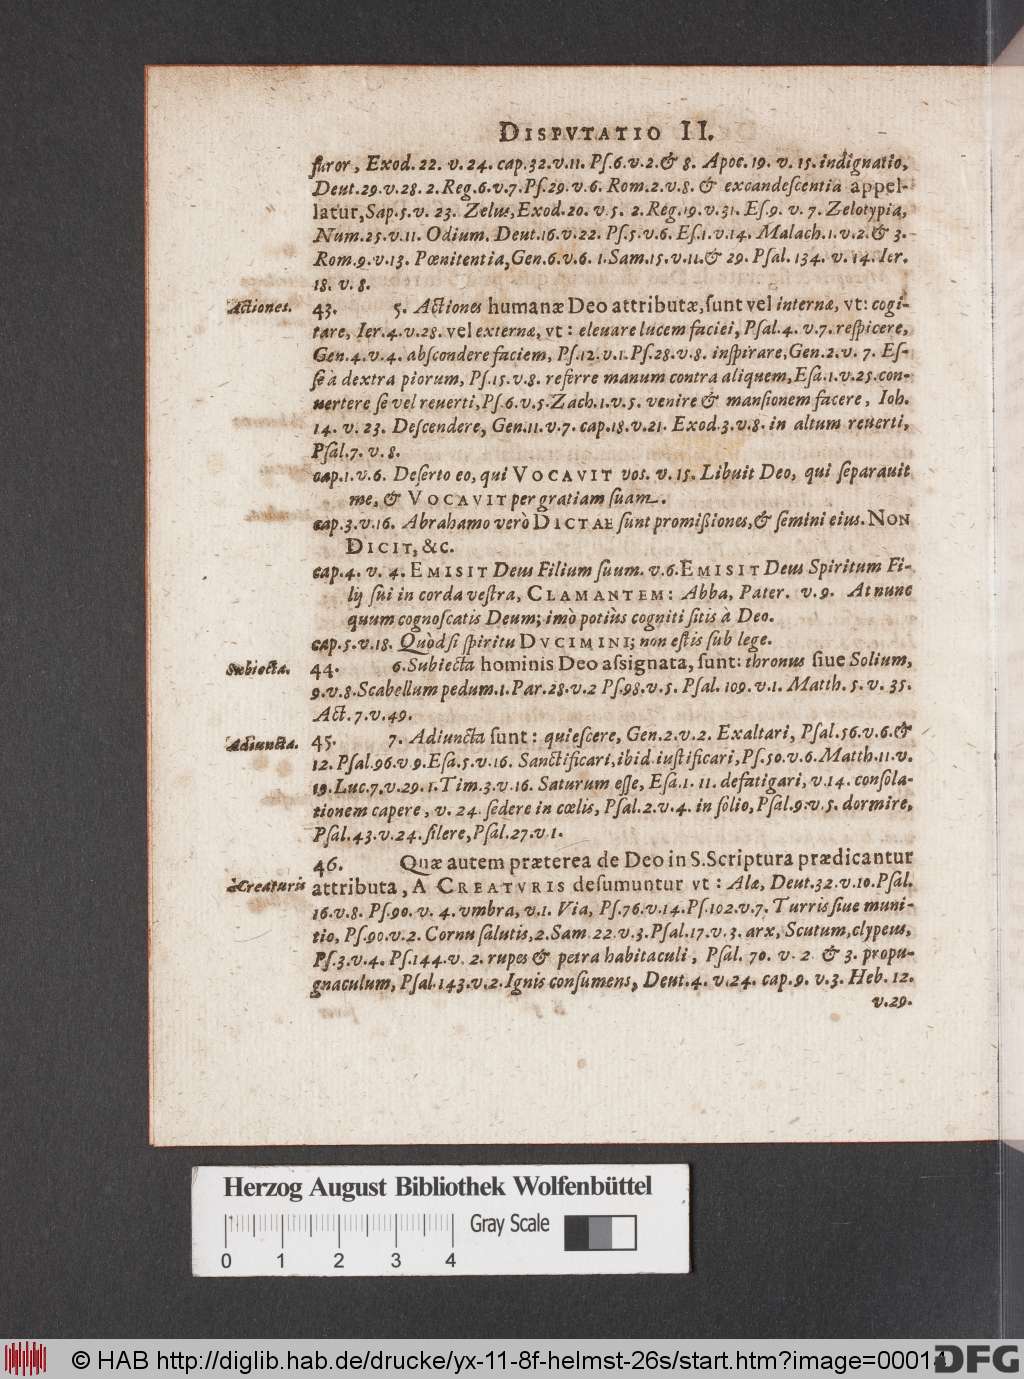 DISPVTATIO II.
furor, Exod. 22. v. 24. cap. 32. v. 11. Pſ. 6. v. 2. & 8. Apoc. 19. v. 15. indignatio,
Deut. 29. v. 28. 2. Reg. 6. v. 7. Pſ. 29. v. 6. Rom. 2. v. 8. & excandeſcentia appel-
latur, Sap. 5. v. 23. Zelus, Exod. 20. v. 5. 2. Reg. 19. v. 31. Eſ. 9. v. 7. Zelotypia,
Num. 25. v. 11. Odium. Deut. 16. v. 22. Pſ. 5. v. 6. Eſ. 1. v. 14. Malach. 1. v. 2. & 3.
Rom. 9. v. 13. Pœnitentia, Gen. 6. v. 6. 1. Sam. 15. v. 11. & 29. Pſal. 134. v. 14. Ier.
18. v. 8.
Actiones. 43. 5. Actiones humanæ Deo attributæ, ſunt vel internæ, vt: cogi-
tare, Ier. 4. v. 28. vel externæ, vt: eleuare lucem faciei, Pſal. 4. v. 7. reſpicere,
Gen. 4. v. 4. abſcondere faciem, Pſ. 12. v. 1. Pſ. 28. v. 8. inſpirare, Gen. 2. v. 7. Eſ-
ſe à dextra piorum, Pſ. 15. v. 8. referre manum contra aliquem, Eſa. 1. v. 25. con-
uertere ſe vel reuerti, Pſ. 6. v. 5. Zach. 1. v. 5. venire & manſionem facere, Ioh.
14. v. 23. Deſcendere, Gen. 11. v. 7. cap. 18. v. 21. Exod. 3. v. 8. in altum reuerti,
Pſal. 7. v. 8.
cap. 1. v. 6. Deſerto eo, qui VOCAVIT vos. v. 15. Libuit Deo, qui ſeparauit
me, & VOCAVIT per gratiam ſuam.
cap. 3. v. 16. Abrahamo verò DICTAE ſunt promißiones, & ſemini eius. NON
DICIT, &c.
cap. 4. v. 4. EMISIT Deus Filium ſuum. v. 6. EMISIT Deus Spiritum Fi-
lij ſui in corda veſtra, CLAMANTEM: Abba, Pater. v. 9. At nunc
quum cognoſcatis Deum; imò potiùs cogniti ſitis à Deo.
cap. 5. v. 18. Quòd ſi ſpiritu DVCIMINI; non eſtis ſub lege.
Subiecta. 44. 6. Subiecta hominis Deo aſsignata, ſunt: thronus ſiue Solium,
9. v. 8. Scabellum pedum. 1. Par. 28. v. 2 Pſ. 98. v. 5. Pſal. 109. v. 1. Matth. 5. v. 35.
Act. 7. v. 49.
Adiuncta. 45. 7. Adiuncta ſunt: quieſcere, Gen. 2. v. 2. Exaltari, Pſal. 56. v. 6. &
12. Pſal. 96. v 9. Eſa. 5. v. 16. Sanctificari, ibid. iuſtificari, Pſ. 50. v. 6. Matth. 11. v.
19. Luc. 7. v. 29. 1. Tim. 3. v. 16. Saturum eſſe, Eſa. 1. 11. defatigari, v. 14. conſola-
tionem capere, v. 24. ſedere in cœlis, Pſal. 2. v. 4. in ſolio, Pſal. 9. v. 5. dormire,
Pſal. 43. v. 24. ſilere, Pſal. 27. v 1.
46. Quæ autem præterea de Deo in S. Scriptura prædicantur
à Creaturis attributa, A CREATVRIS deſumuntur vt: Alæ, Deut. 32. v. 10. Pſal.
16. v. 8. Pſ. 90. v. 4. vmbra, v. 1. Via, Pſ. 76. v. 14. Pſ. 102. v. 7. Turris ſiue muni-
tio, Pſ. 90. v. 2. Cornu ſalutis, 2. Sam. 22. v. 3. Pſal. 17. v. 3. arx, Scutum, clypeus,
Pſ. 3. v. 4. Pſ. 144. v. 2. rupes & petra habitaculi, Pſal. 70. v. 2 & 3. propu-
gnaculum, Pſal. 143. v. 2. Ignis conſumens, Deut. 4. v. 24. cap. 9. v. 3. Heb. 12.
v. 29.
Herzog August Bibliothek Wolfenbüttel
Gray Scale
0 1 2 3 4
© HAB http://diglib.hab.de/drucke/yx-11-8f-helmst-26s/start.htm?image=00014
DFG